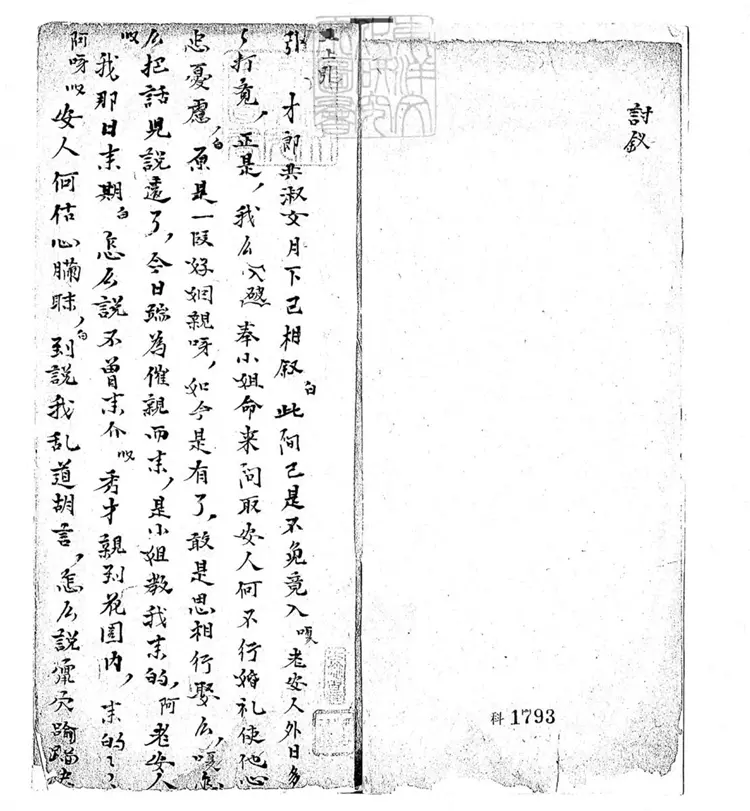 討釵
科 1793
上引
引 才郎共淑女月下已相叙 白 此间已是不免竟入 嗄 老安人外日多
打竟，正是，我么 入 奉小姐命来问取安人何不行婚礼使他心
忠憂慮，白 原是一段好姻親呀，如今是有了，敢是思相行娶么，嘆怎
么把話児説遠了，今日踪為催親而来，是小姐教我来的，阿 老安人
我那日来期 白 怎么説不曽来介 秀才親到花園内，来的
阿呀 安人何估心瞒昧，白 到説我乱道胡言，怎么説